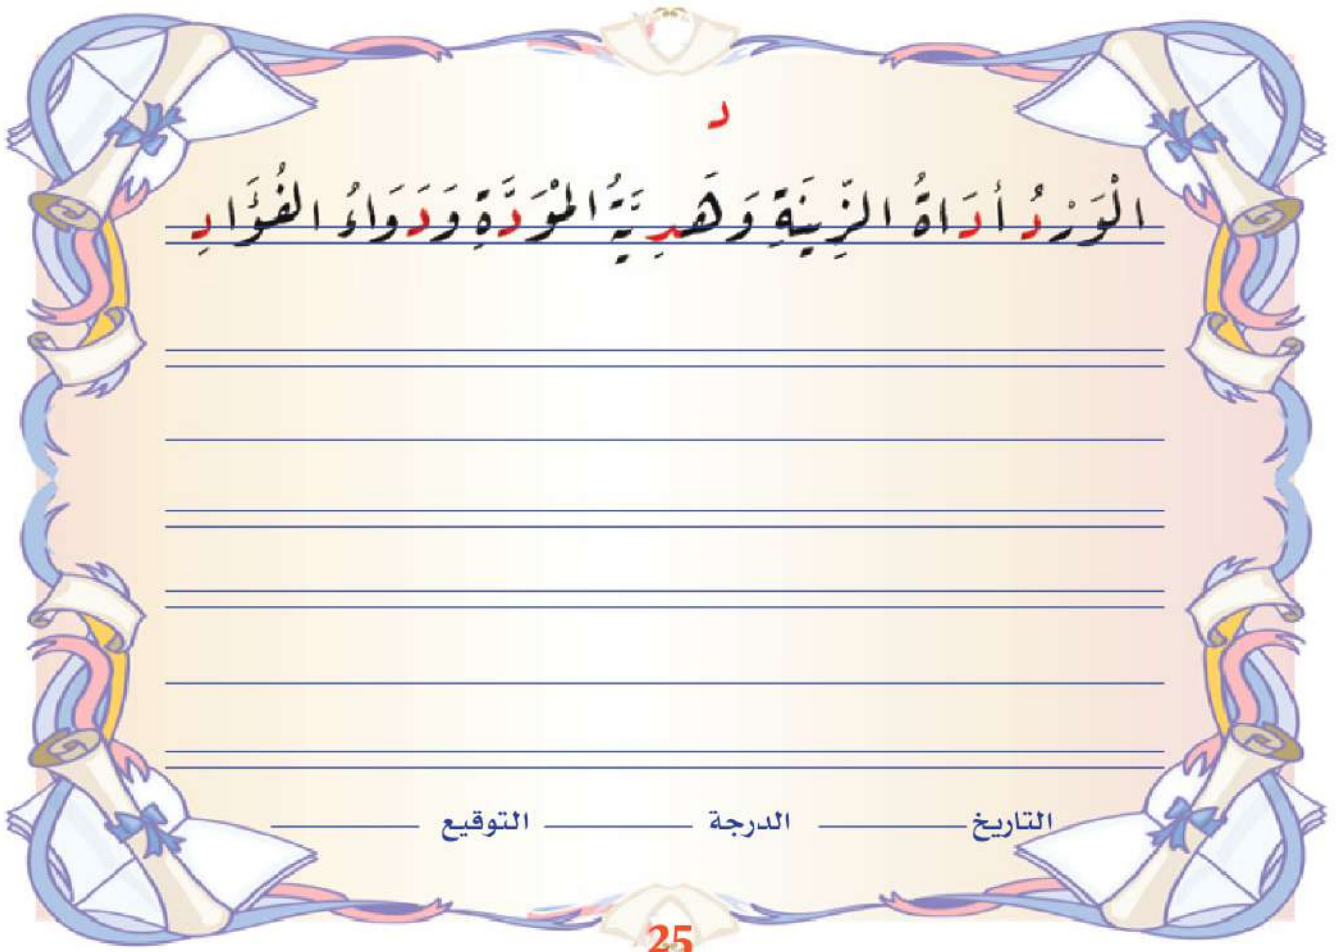 د
الْوَرْدُ أدَاةُ الزِّينَةِ وَهَدِيَّةُ الْمَوَدَّةِ وَدَوَاءُ الفُؤَادِ
التاريخ الدرجة التوقيع
25